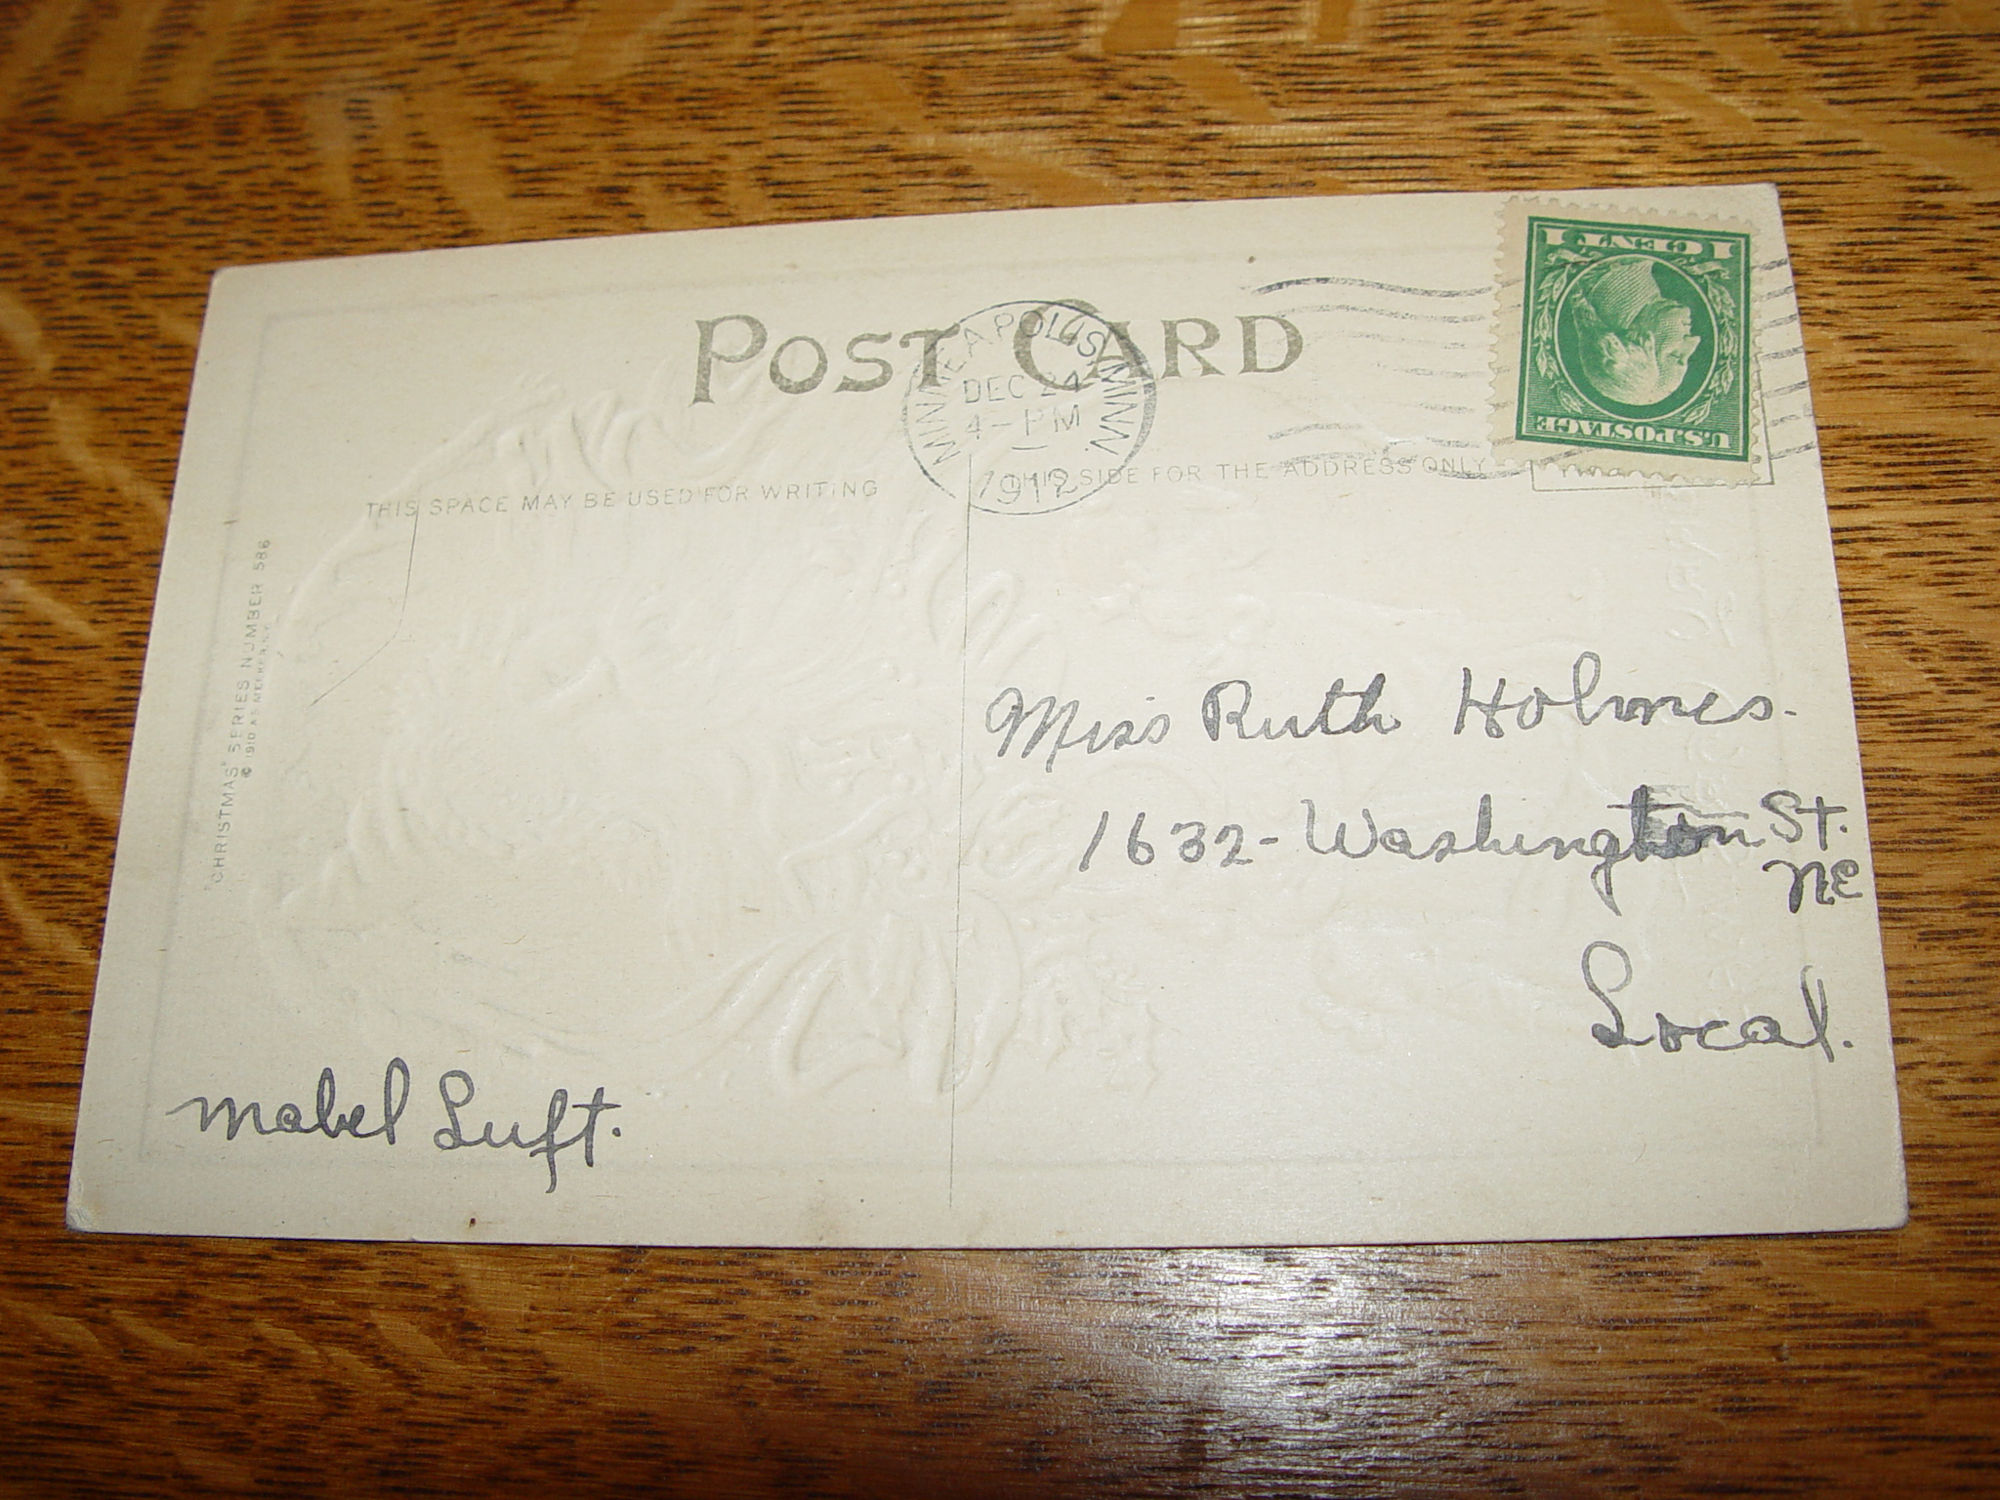 POST CARD
MINNEAPOLIS, MINN.
DEC 24
4-PM
1912
1 CENT 1
U.S.POSTAGE
THIS SPACE MAY BE USED FOR WRITING
THIS SIDE FOR THE ADDRESS ONLY
"CHRISTMAS" SERIES NUMBER 586
© 1910
Miss Ruth Holmes.
1632- Washington St.
N.E
Local.
Mabel Luft.